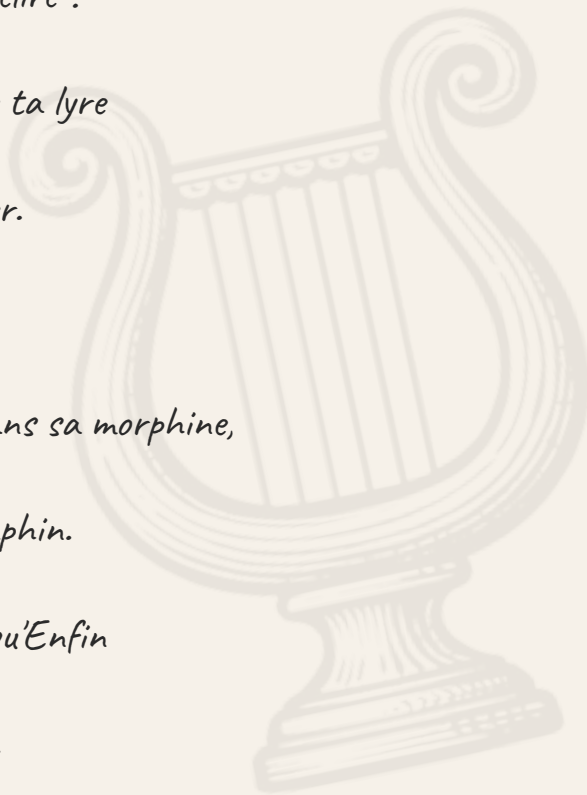 ta lyre
r.
ns sa morphine,
phin.
u'Enfin